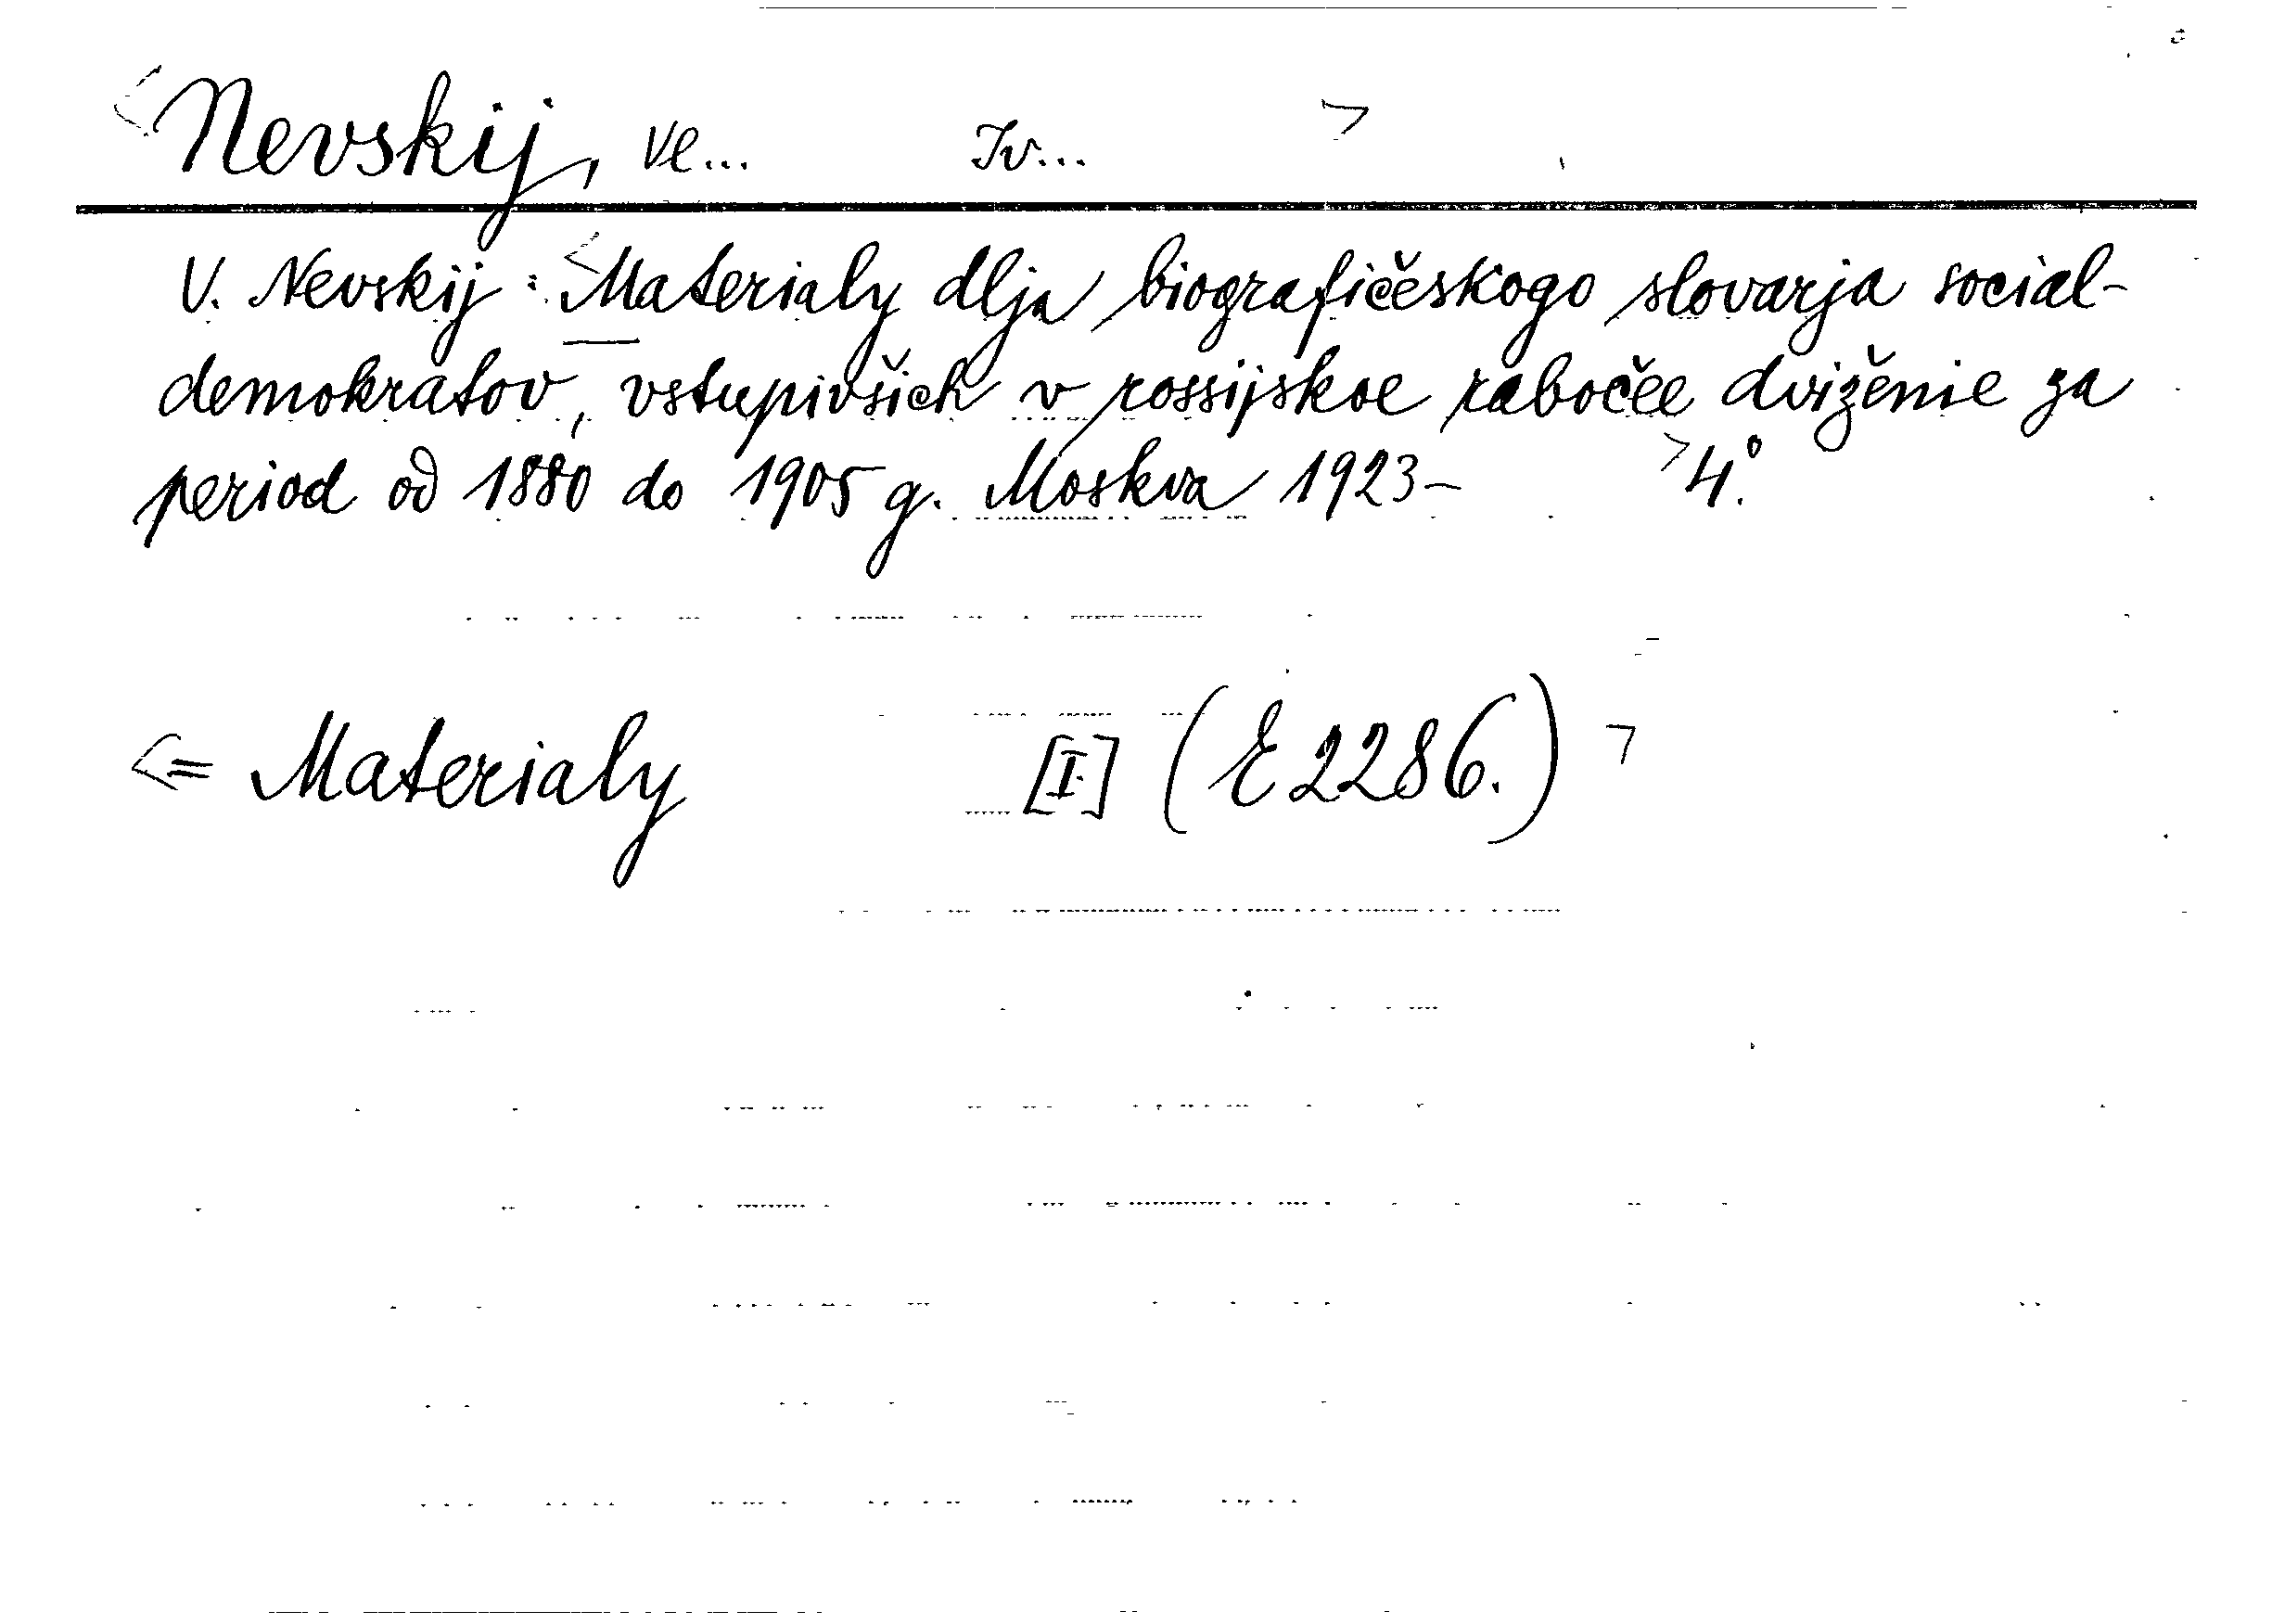 <Nevskij, Vl... Iv... >
V. Nevskij: <Materialy dlja biografičeskogo slovarja social-
demokratov, vstupivšich v rossijskoe rabočee dviženie za
period od 1880 do 1905 g. Moskva 1923- >4°.
<= Materialy [I] (E 2286.) >